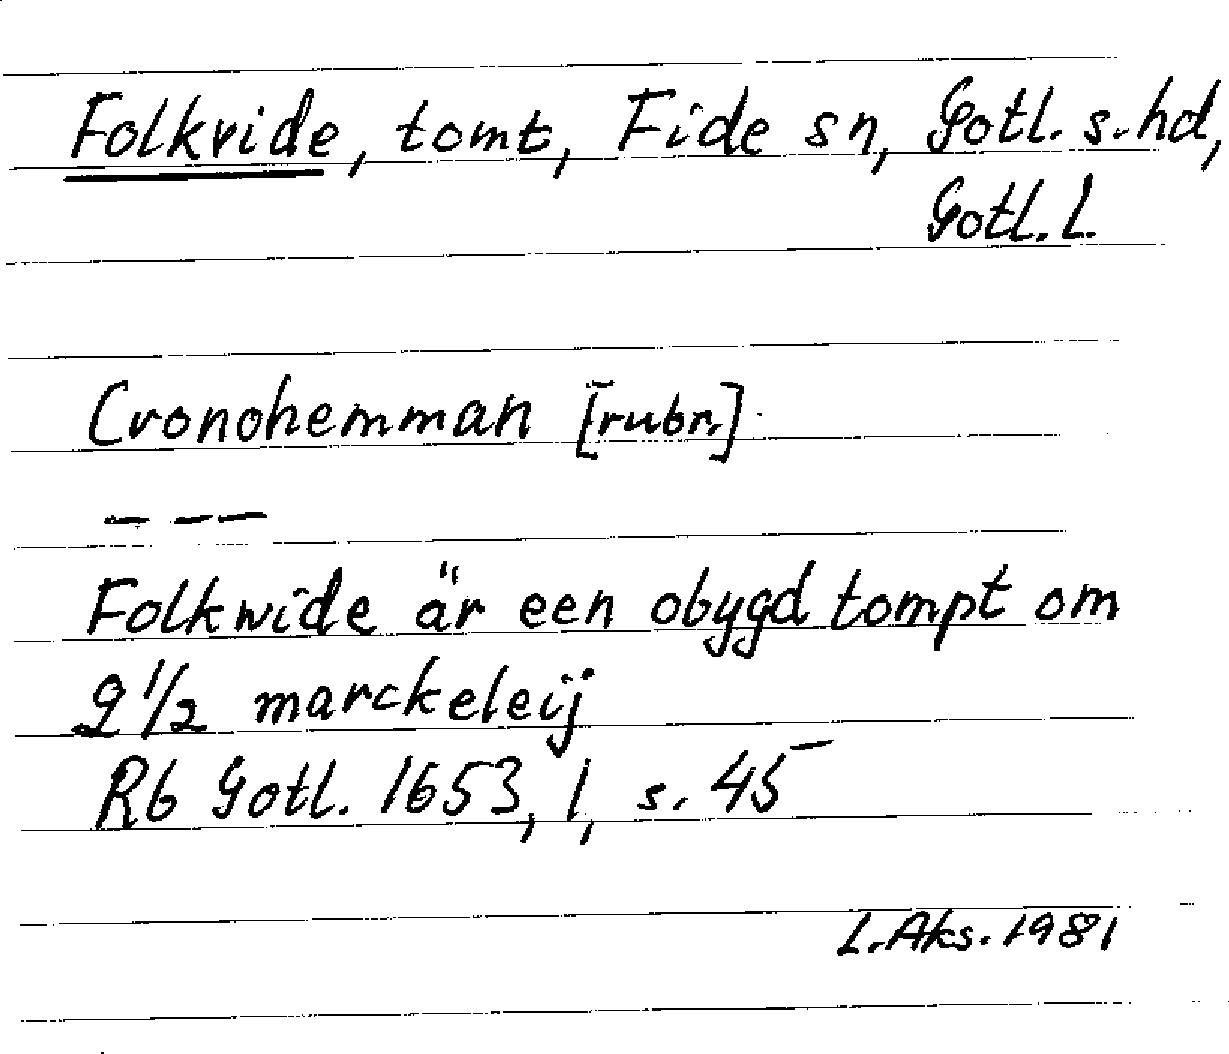 Folkvide, tomt, Fide sn, Gotl. s. hd,
Gotl. l.
Cronohemman [rubr.]
— — —
Folkwide är een obygd tompt om
2 1/2 marckeleij
Rb Gotl. 1653, 1, s. 45
L. Aks. 1981